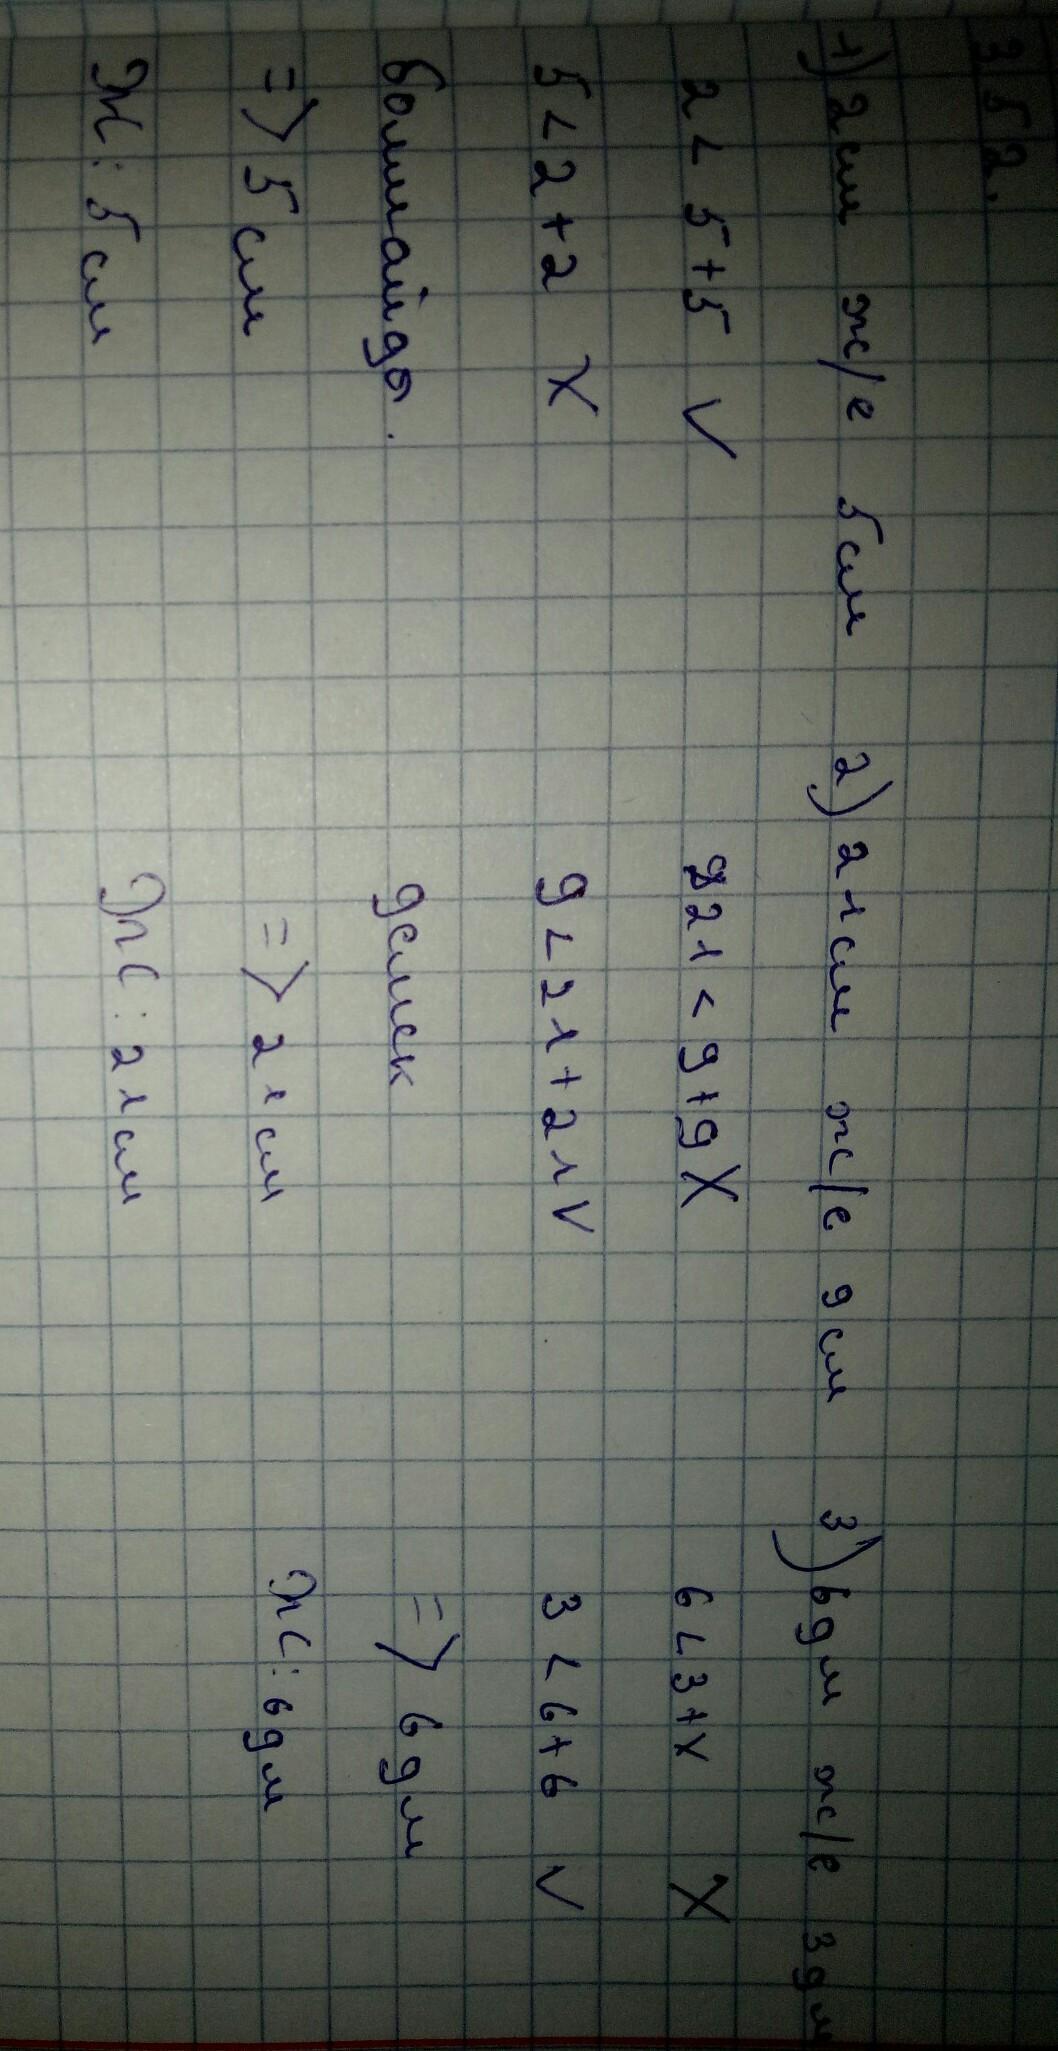 352.
1) 2см ж/е 5см 2) 21см ж/е 9см 3) 6дм ж/е 3дм
2 < 5+5 V 21 < 9+9 X 6 < 3+ X
5 < 2+2 X 9 < 21+21 V 3 < 6+6 V
болмайды. демек => 6дм
=> 5см => 21см Ж: 6дм
Ж: 5см Ж: 21см